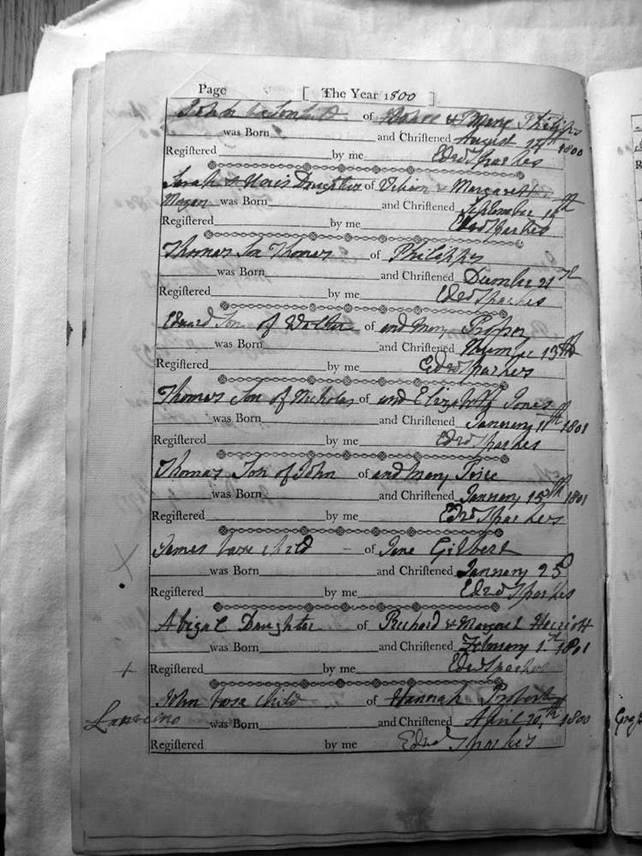 Page [ The Year 1800
John of & Mary Philips
was Born and Christened August 1800
Registered by me Edwd Sparkes
Sarah Daughter of & Margaret
was Born and Christened September
Registered by me Edwd Sparkes
Thomas Son Thomas of Philipps
was Born and Christened December 21st
Registered by me Edwd Sparkes
Edward Son of Walter of and Mary Prosser
was Born and Christened
Registered by me Edwd Sparkes
Thomas Son of Nicholas of and Elizabeth Jones
was Born and Christened January 11th 1801
Registered by me Edwd Sparkes
Thomas Son of John of and Mary
was Born and Christened January 15th 1801
Registered by me Edwd Sparkes
James base child of Jane Gilbert
was Born and Christened January 25
Registered by me Edwd Sparkes
Abigal Daughter of Richard & Margaret
was Born and Christened February 1st 1801
Registered by me Edwd Sparkes
John base child of Hannah Probert
was Born and Christened April 20th 1800
Registered by me Edwd Sparkes